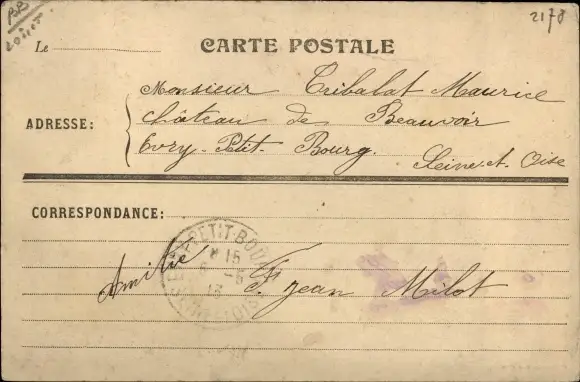 BB
Loiret
2178
Le
CARTE POSTALE
ADRESSE:
Monsieur Tribalat Maurice
château de Beauvoir
Evry-Petit-Bourg.
Seine-et-Oise
CORRESPONDANCE:
PETIT-BOURG
Amitié Jean Milot